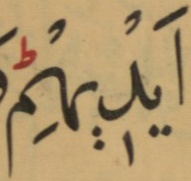 اَيْدٖيهِمْ ط